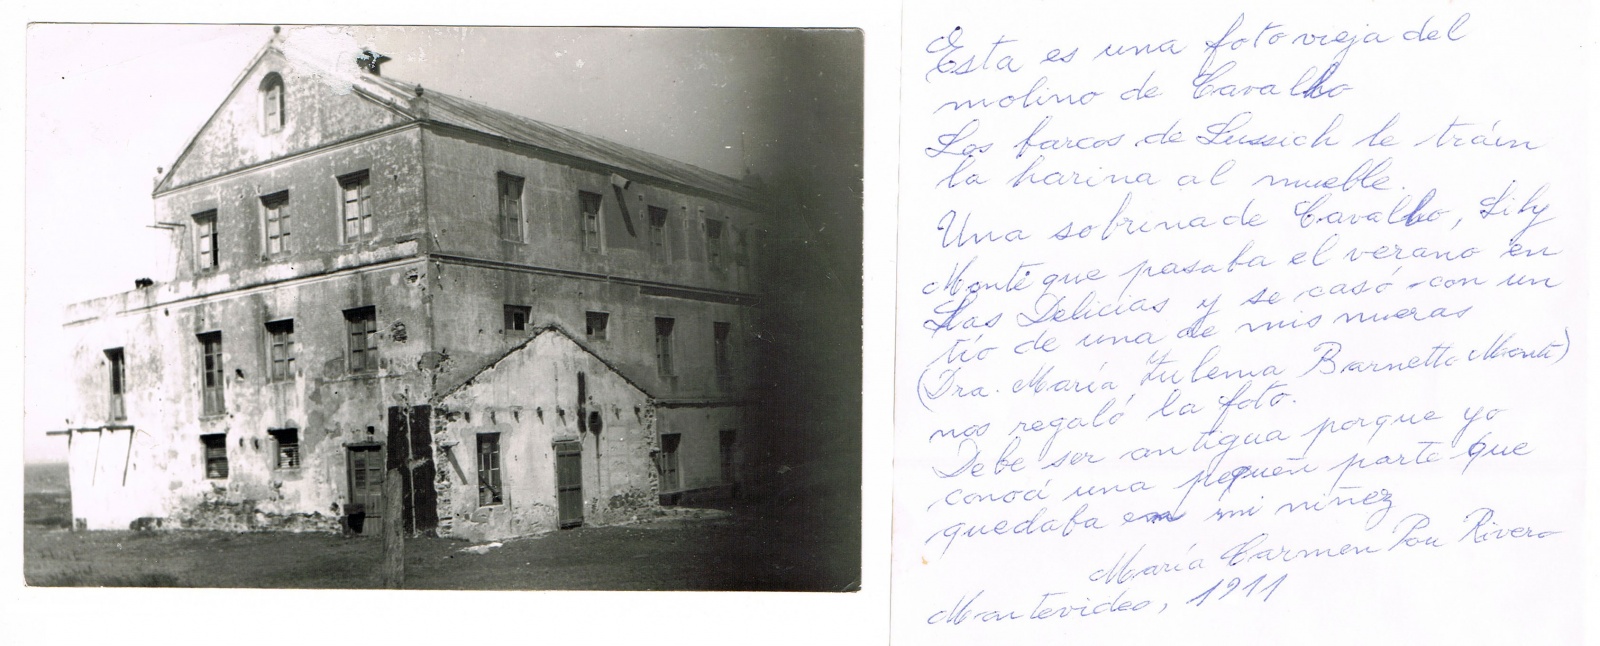 Esta es una foto vieja del
molino de Cavalho
Los barcos de Lussich le tráin
la harina al muelle.
Una sobrina de Cavalho, Lily
Monti que pasaba el verano en
Las Delicias y se casó con un
tío de una de mis nueras
(Dra. María Zulema Barnetto Monti)
nos regaló la foto.
Debe ser antigua porque yo
conocí una pequeñ parte que
quedaba en mi niñez
María Carmen Pou Rivero
Montevideo, 1911